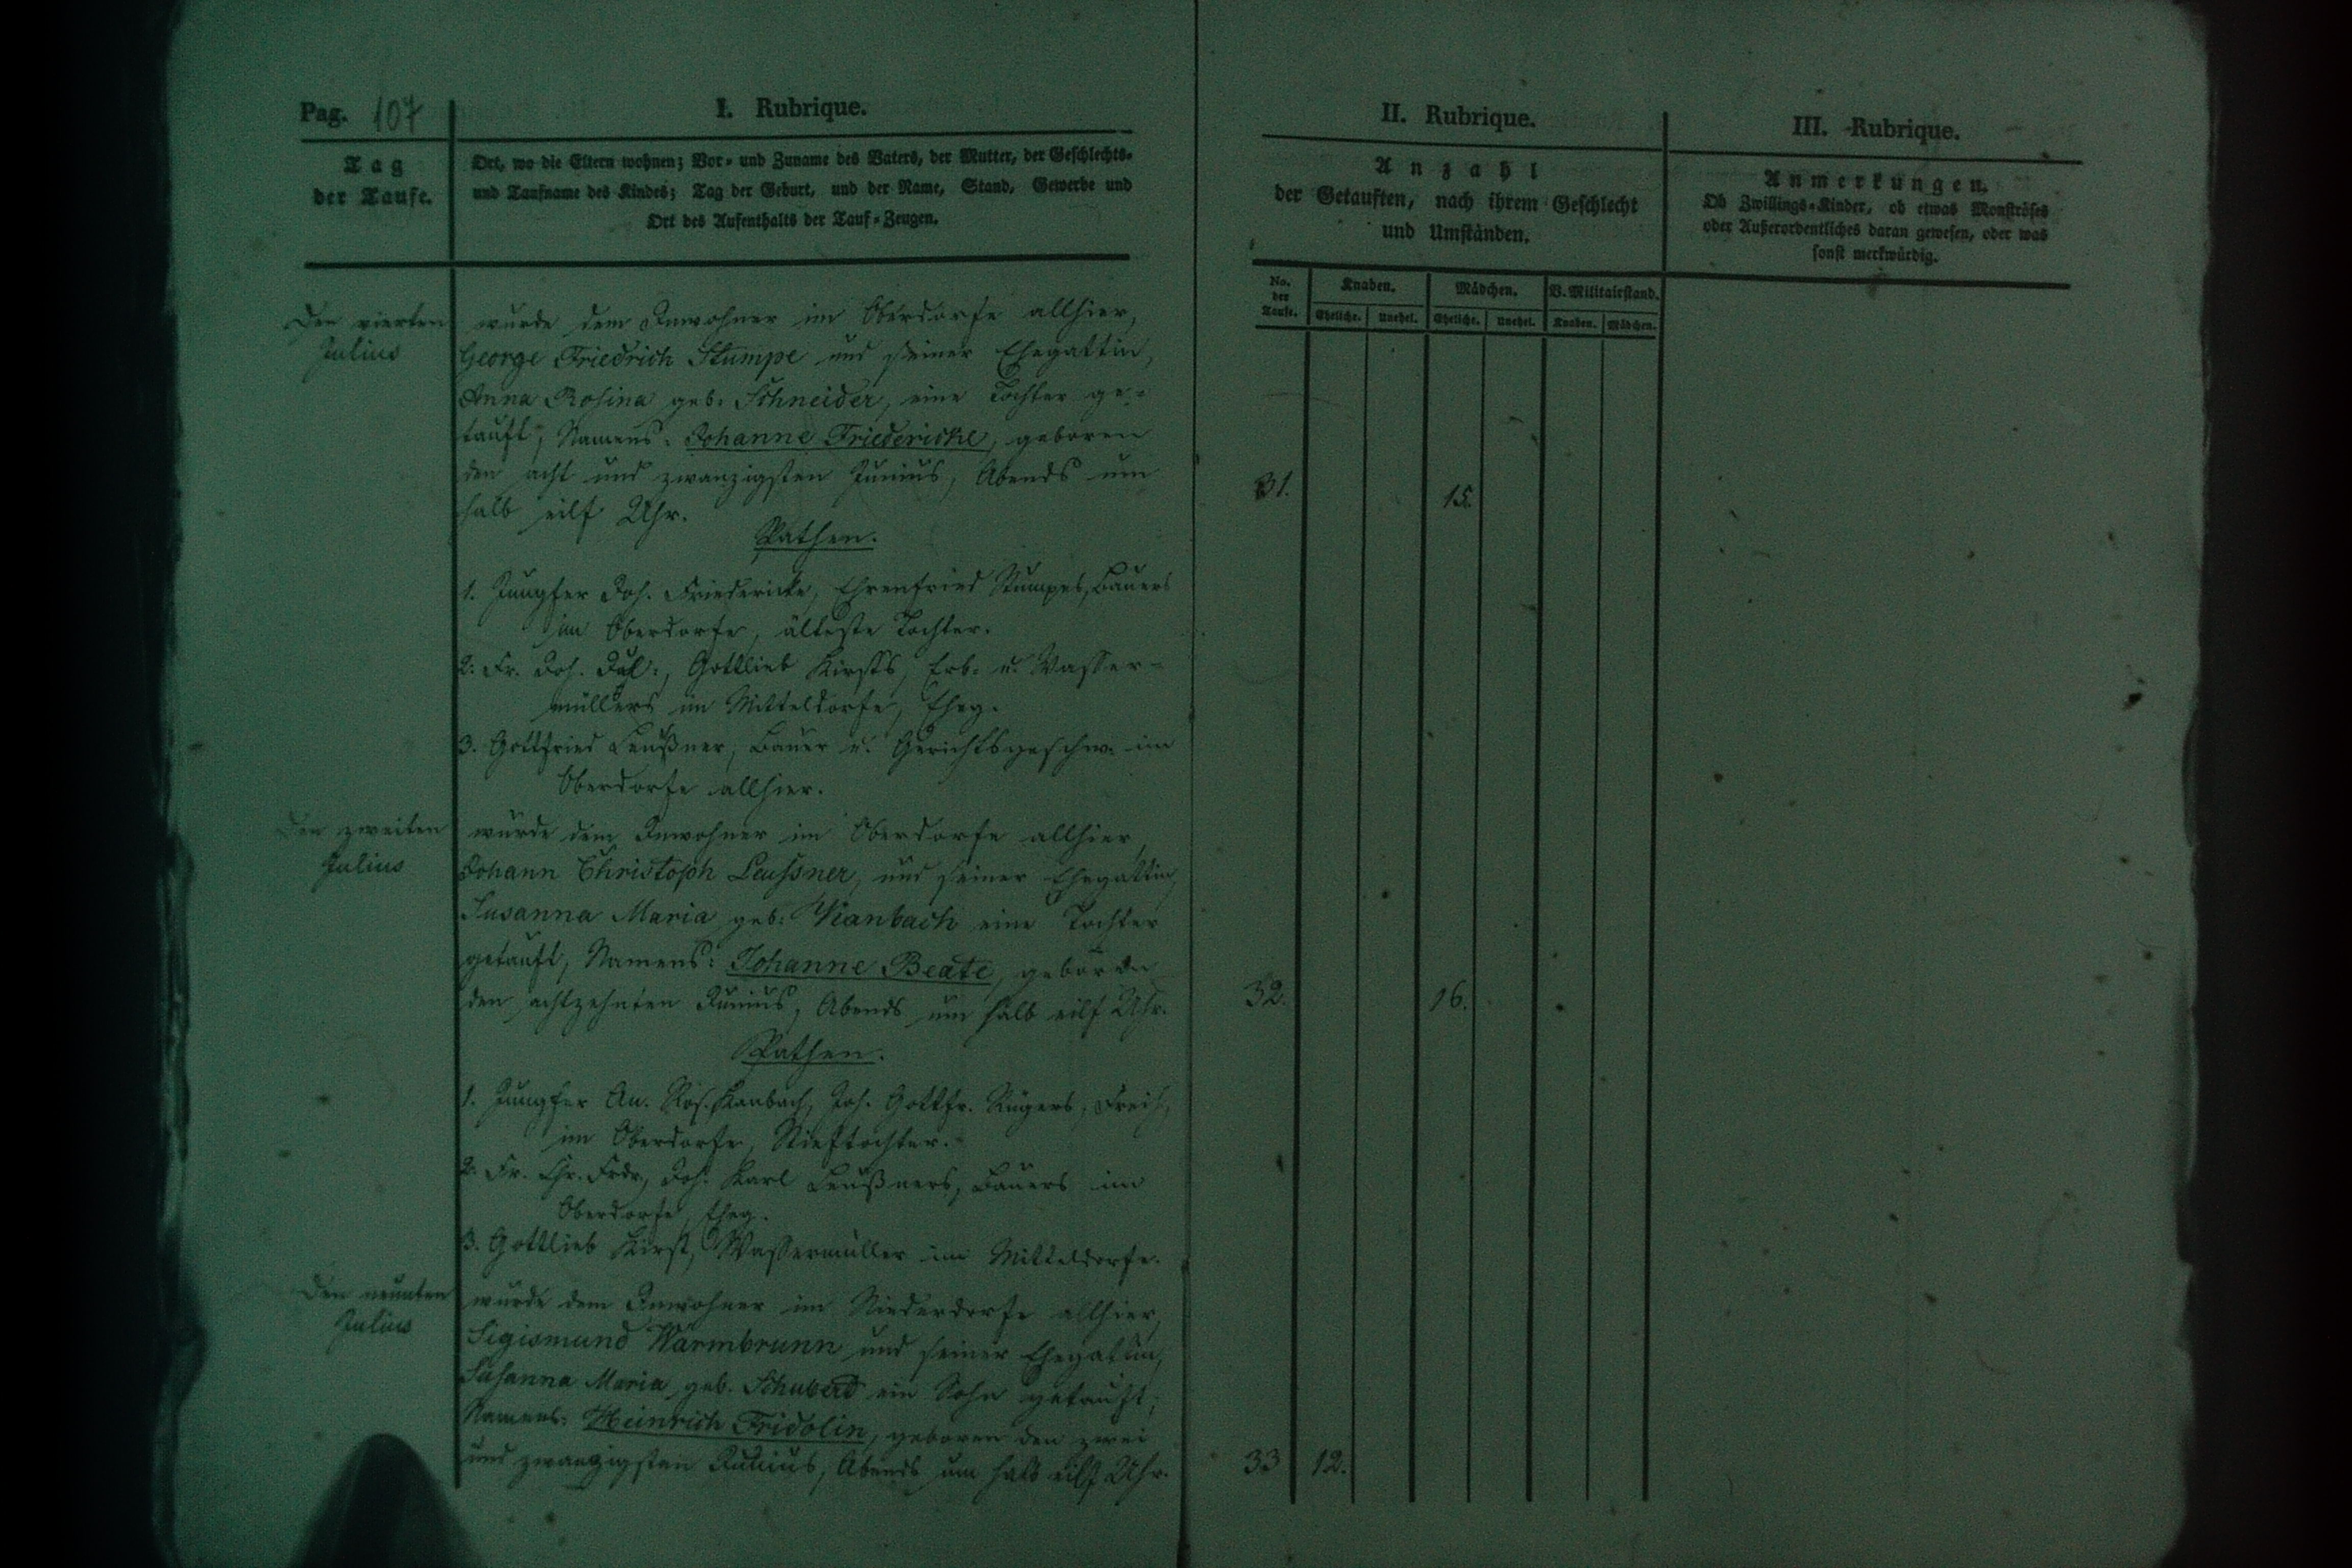 Pag. 107
I. Rubrique.
Tag
der Taufe.
Ort, wo die Eltern wohnen; Vor- und Zuname des Vaters, der Mutter, der Geschlechts-
und Taufname des Kindes; Tag der Geburt, und der Name, Stand, Gewerbe und
Ort des Aufenthalts der Tauf-Zeugen.
Den vierten
Julius
wurde dem Inwohner im Oberdorfe allhier,
George Friedrich Stumpe und seiner Ehegattin,
Anna Rosina geb: Schneider, eine Tochter ge-
tauft, Namens: Johanne Friedericke, geboren
den acht und zwanzigsten Junius, Abends um
halb eilf Uhr.
Pathen.
1. Jungfer Joh. Friedericke, Ehrenfried Stumpes, Bauers
im Oberdorfe, älteste Tochter.
2. Fr. Joh. Jul:, Gottlieb Kirsts, Erb- u. Wasser-
müllers im Mitteldorfe, Eheg.
3. Gottfried Leußner, Bauer u. Gerichtsgeschw. im
Oberdorfe allhier.
Den zweiten
Julius
wurde dem Inwohner im Oberdorfe allhier,
Johann Christoph Leussner, und seiner Ehegattin,
Susanna Maria geb: Kanbach eine Tochter
getauft, Namens: Johanne Beate, geboren
den achtzehnten Junius, Abends um halb eilf Uhr.
Pathen.
1. Jungfer An. Ros. Kanbach, Joh. Gottfr. Rügers, Freih,
im Oberdorfe, Stieftochter.
2. Fr. Chr. Frdr., Joh. Karl Leußners, Bauers im
Oberdorfe, Eheg.
3. Gottlieb Kirst, Wassermüller im Mitteldorfe.
Den neunten
Julius
wurde dem Inwohner im Niederdorfe allhier,
Sigismund Warmbrunn und seiner Ehegattin,
Susanna Maria geb. Schubert ein Sohn getauft,
Namens: Heinrich Fridolin, geboren den zwei
und zwanzigsten Junius, Abends um halb eilf Uhr.
II. Rubrique.
Anzahl
der Getauften, nach ihrem Geschlecht
und Umständen.
No. der Taufe.
Knaben.
Mädchen.
V. Militairstand.
Eheliche.
Unehel.
Eheliche.
Unehel.
Knaben.
Mädchen.
31.
15.
32.
16.
33
12.
III. Rubrique.
Anmerkungen.
Ob Zwillings-Kinder, ob etwas Monströses
oder Außerordentliches daran gewesen, oder was
sonst merkwürdig.